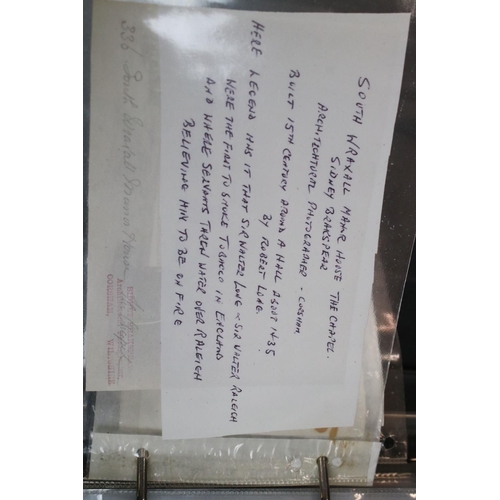 SOUTH WRAXALL MANOR HOUSE THE CHAPEL.
SIDNEY BRAKSPEAR
ARCHITECHTURAL PHOTOGRAPHER - CORSHAM
BUILT 15TH CENTURY AROUND A HALL ABOUT 1435
BY ROBERT LONG.
HERE LEGEND HAS IT THAT SIR WALTER LONG & SIR WALTER RALEIGH
WERE THE FIRST TO SMOKE TOBACCO IN ENGLAND
AND WHERE SERVANTS THREW WATER OVER RALEIGH
BELIEVING HIM TO BE ON FIRE
336 South Wraxall Manor House
CORSHAM, WILTSHIRE